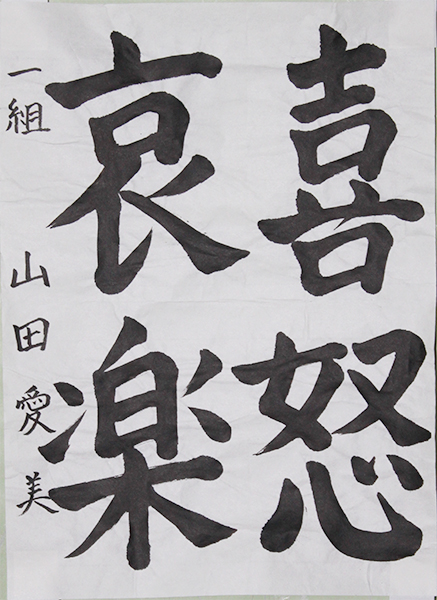 喜怒
哀楽
一組 山田愛美